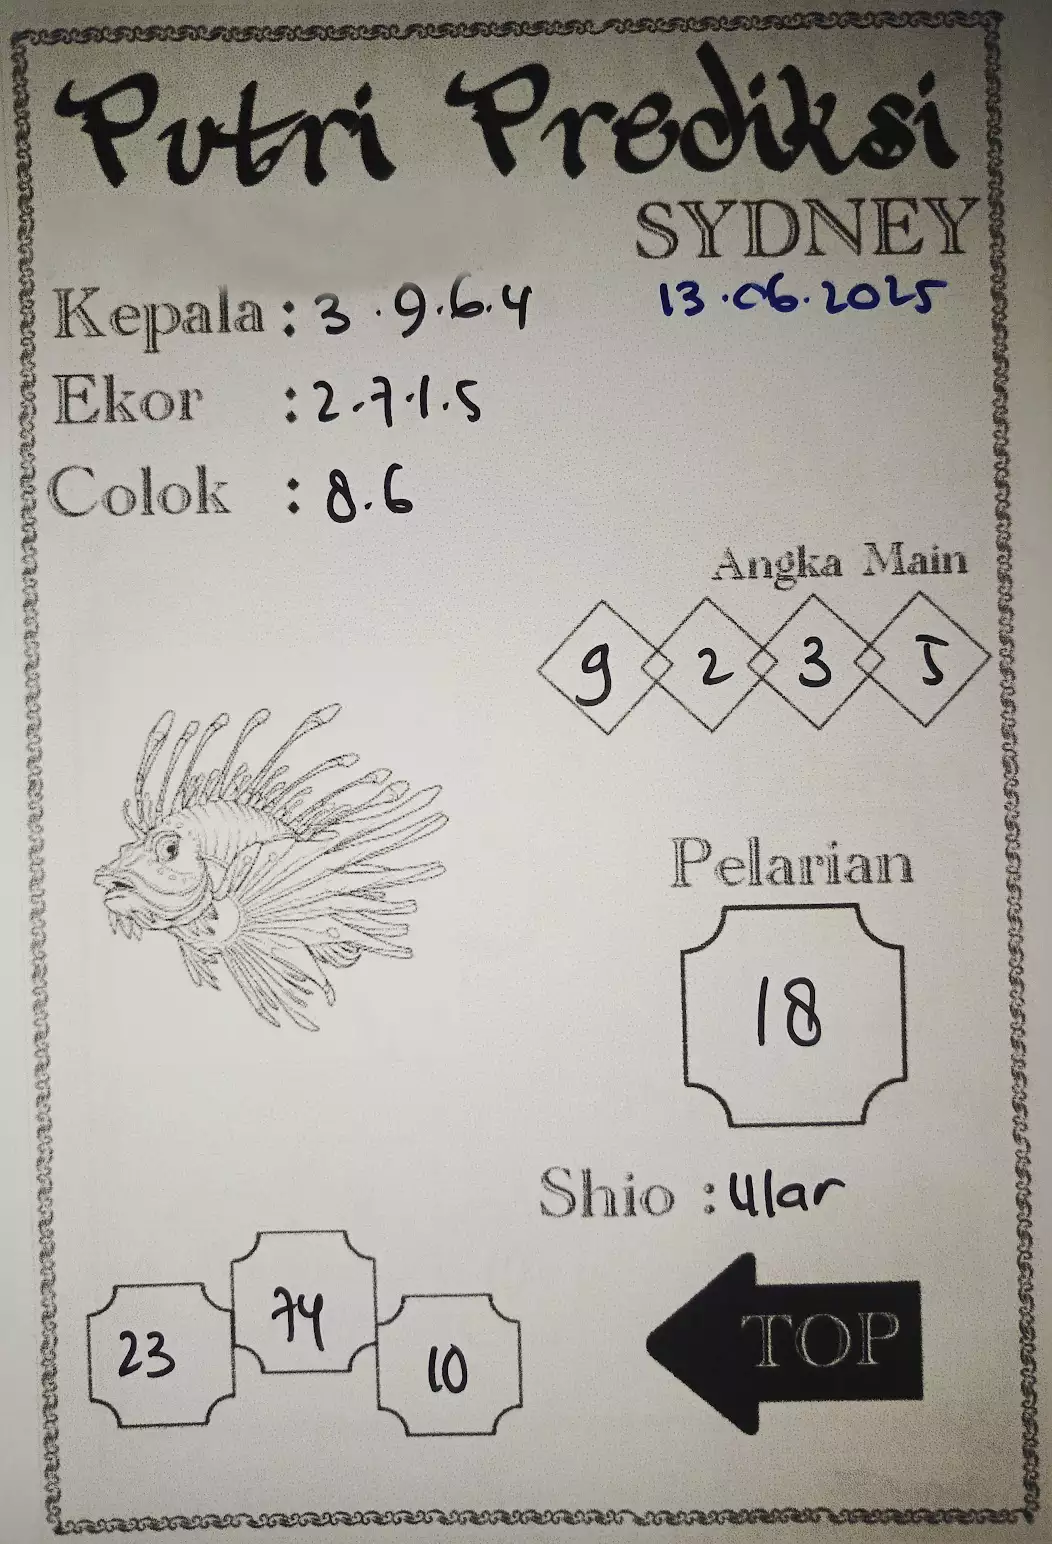 Putri Prediksi
SYDNEY
13.06.2025
Kepala : 3.9.6.4
Ekor : 2.7.1.5
Colok : 8.6
Angka Main
9 2 3 5
Pelarian
18
Shio : Ular
23 74 10
TOP